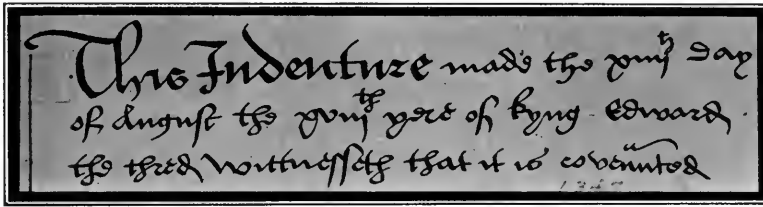 This Indenture made the xiiijth day
of August the xviijth yere of kyng Edward
the thred wittnesseth that it is covenaunted